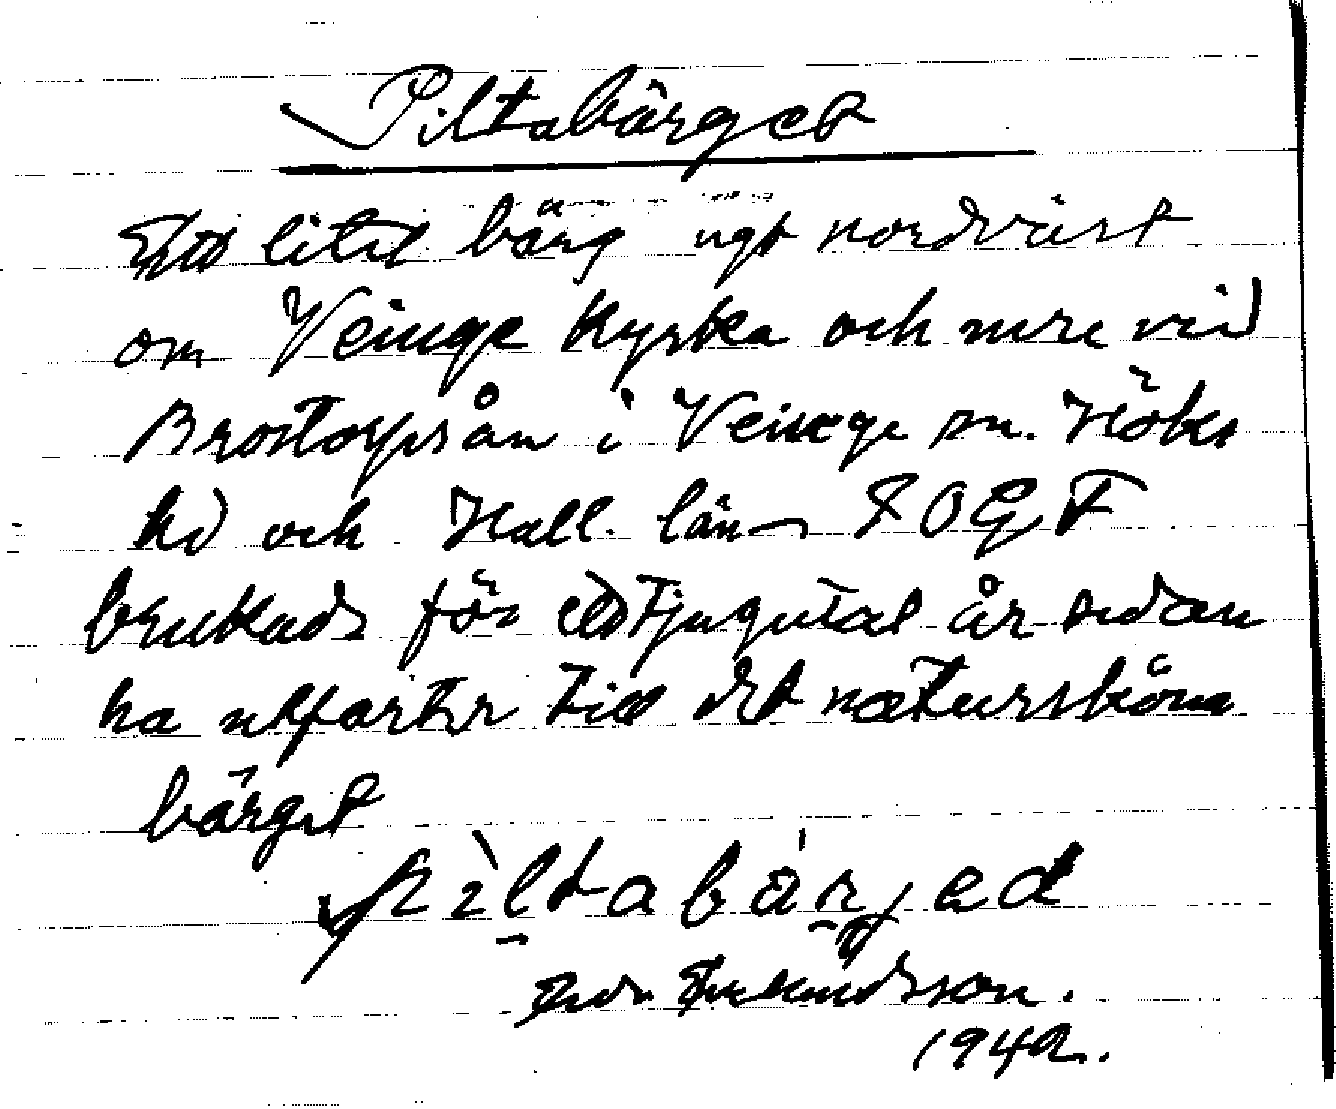 Piltabärget
Ett litet bärg ugt nordväst
om Veinge Kyrka och nere vid
Brostorpsån i Veinge sn. Höks
hd och Hall. län. IOGT
brukade för ett tjugutal år sedan
ha utfarter till det natursköna
bärget
piltabärjed
1942.